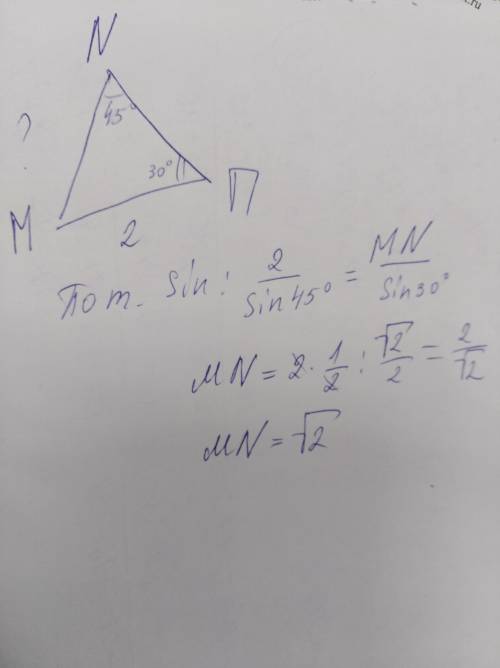 N
45°
?
30°
П
М
2
По т. sin: 2/sin45° = MN/sin30°
MN = 2·1/2 : √2/2 = 2/√2
MN = √2